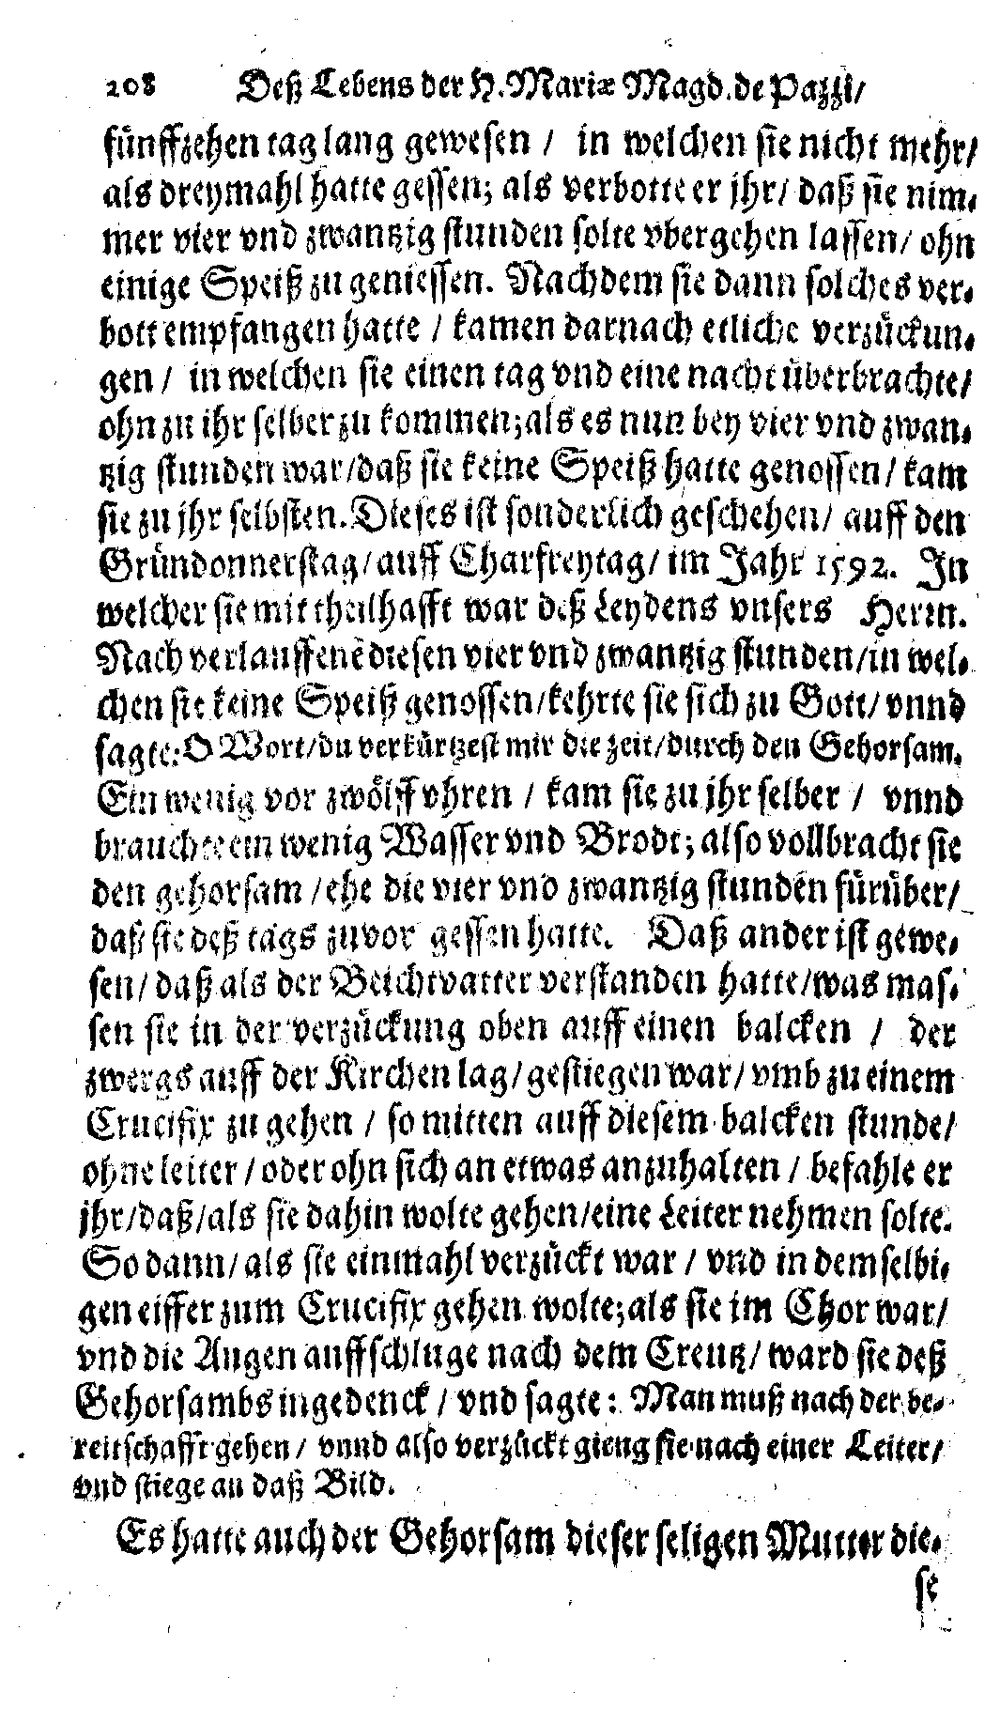 208 Deß Lebens der H. Mariæ Magd. de Pazzi/
fünffzehen tag lang gewesen / in welchen sie nicht mehr/
als dreymahl hatte gessen; als verbotte er jhr/ daß sie nim-
mer vier vnd zwantzig stunden solte vbergehen lassen/ ohn
einige Speiß zu geniessen. Nachdem sie dann solches ver-
bott empfangen hatte / kamen darnach etliche verzückun-
gen / in welchen sie einen tag vnd eine nacht überbrachte/
ohn zu ihr selber zu kommen; als es nun bey vier vnd zwan-
tzig stunden war/daß sie keine Speiß hatte genossen/ kam
sie zu jhr selbsten. Dieses ist sonderlich geschehen/ auff den
Gründonnerstag/ auff Charfreytag/ im Jahr 1592. In
welcher sie mit theilhafft war deß Leydens vnsers Herrn.
Nach verlauffenē diesen vier vnd zwantzig stunden/in wel-
chen sie keine Speiß genossen/kehrte sie sich zu Gott/ vnnd
sagte: O Wort/du verkürtzest mir die zeit/durch den Gehorsam.
Ein wenig vor zwölff vhren / kam sie zu jhr selber / vnnd
brauchte ein wenig Wasser vnd Brodt; also vollbracht sie
den gehorsam /ehe die vier vnd zwantzig stunden fürüber/
daß sie deß tags zuvor gessen hatte. Daß ander ist gewe-
sen/ daß als der Beichtvatter verstanden hatte/was mas-
sen sie in der verzückung oben auff einen balcken / der
zwergs auff der Kirchen lag/ gestiegen war/ vmb zu einem
Crucifix zu gehen / so mitten auff diesem balcken stunde/
ohne leiter / oder ohn sich an etwas anzuhalten / befahle er
jhr/daß/als sie dahin wolte gehen/eine Leiter nehmen solte.
So dann/ als sie einmahl verzückt war / vnd in demselbi-
gen eiffer zum Crucifix gehen wolte; als sie im Chor war/
vnd die Augen auffschluge nach dem Creutz/ ward sie deß
Gehorsambs ingedenck / vnd sagte: Man muß nach der be-
reitschafft gehen/ vnnd also verzückt gieng sie nach einer Leiter/
vnd stiege an daß Bild.
Es hatte auch der Gehorsam dieser seligen Mutter die-
se